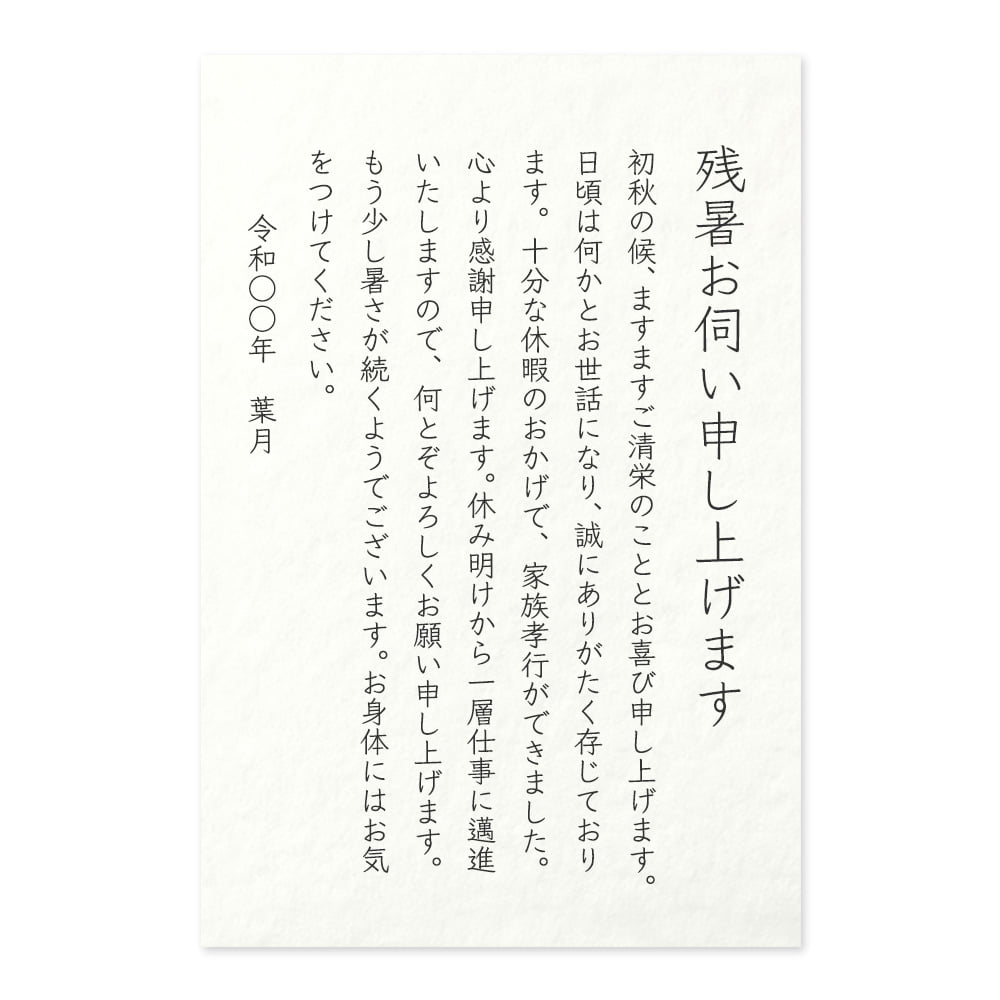 残暑お伺い申し上げます
初秋の候、ますますご清栄のこととお喜び申し上げます。
日頃は何かとお世話になり、誠にありがたく存じており
ます。十分な休暇のおかげで、家族孝行ができました。
心より感謝申し上げます。休み明けから一層仕事に邁進
いたしますので、何とぞよろしくお願い申し上げます。
もう少し暑さが続くようでございます。お身体にはお気
をつけてください。
令和〇〇年　葉月